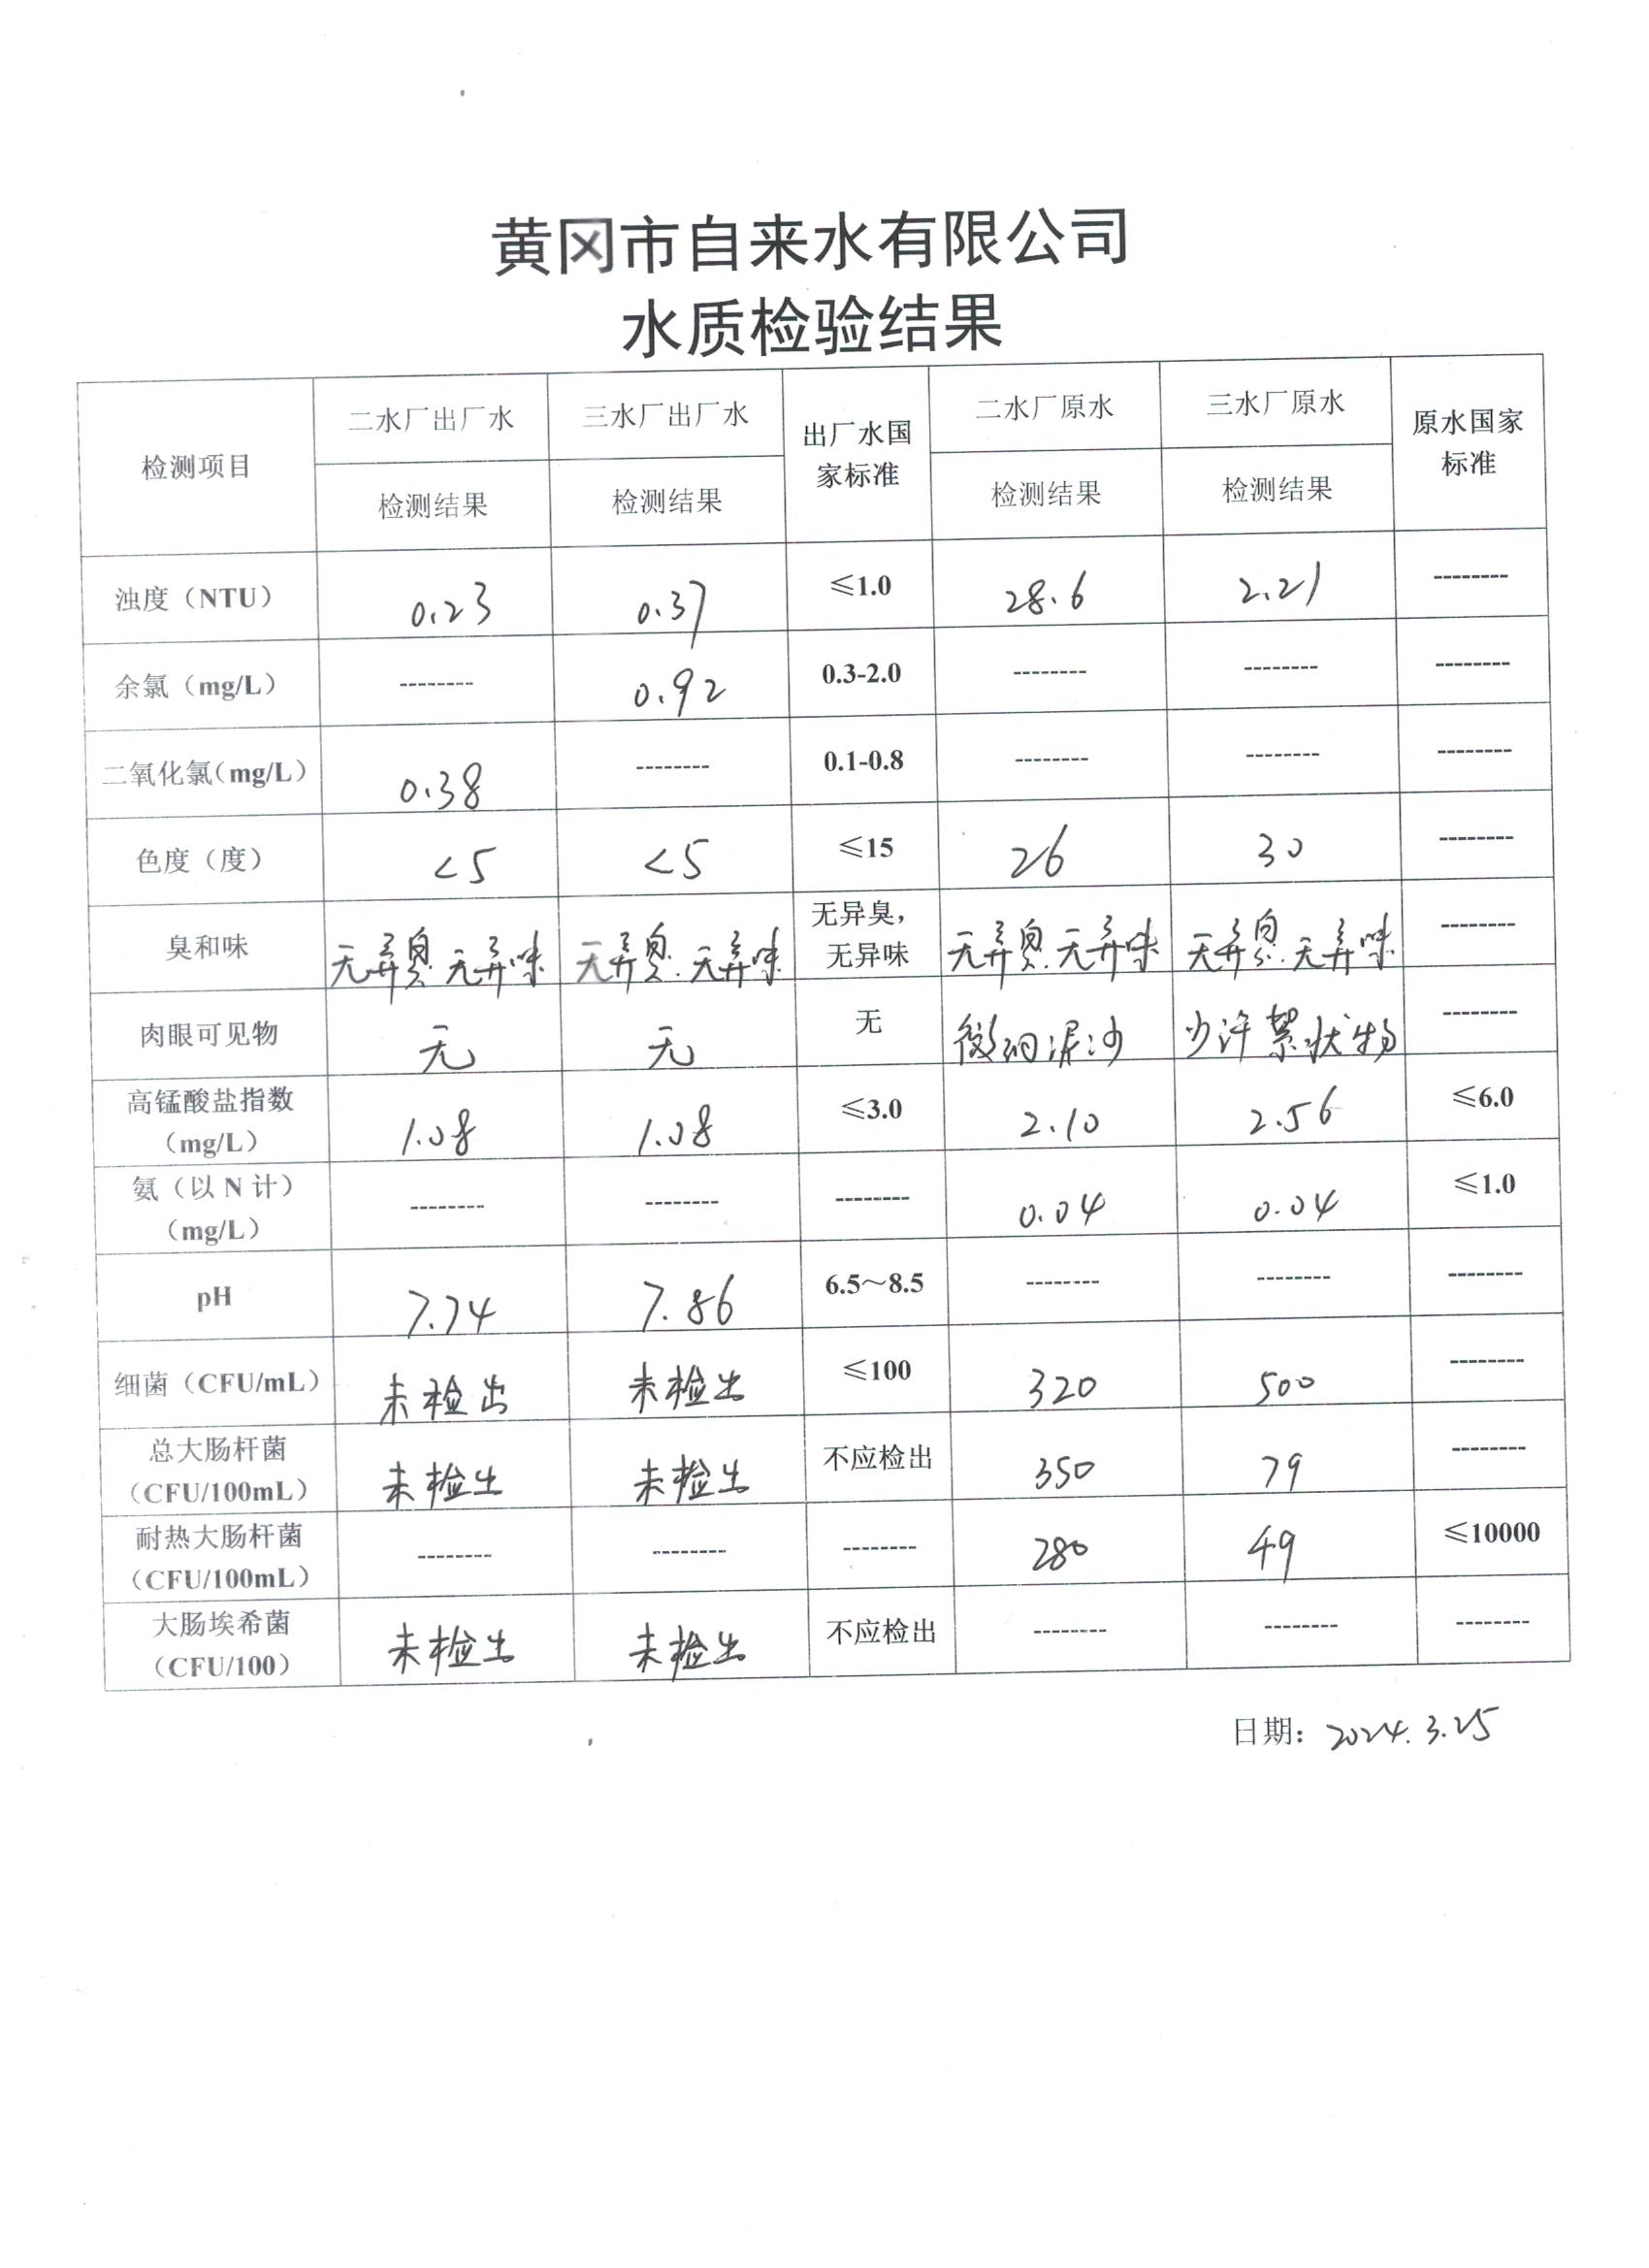 黄冈市自来水有限公司
水质检验结果
检测项目 二水厂出厂水 三水厂出厂水 出厂水国家标准 二水厂原水 三水厂原水 原水国家标准
检测结果 检测结果 检测结果 检测结果
浊度（NTU） 0.23 0.37 ≤1.0 28.6 2.21 --------
余氯（mg/L） -------- 0.92 0.3-2.0 -------- -------- --------
二氧化氯（mg/L） 0.38 -------- 0.1-0.8 -------- -------- --------
色度（度） <5 <5 ≤15 26 30 --------
臭和味 无异臭.无异味 无异臭.无异味 无异臭，无异味 无异臭.无异味 无异臭.无异味 --------
肉眼可见物 无 无 无 微细泥沙 少许絮状物 --------
高锰酸盐指数（mg/L） 1.08 1.08 ≤3.0 2.10 2.56 ≤6.0
氨（以 N 计）（mg/L） -------- -------- -------- 0.04 0.04 ≤1.0
pH 7.74 7.86 6.5～8.5 -------- -------- --------
细菌（CFU/mL） 未检出 未检出 ≤100 320 500 --------
总大肠杆菌（CFU/100mL） 未检出 未检出 不应检出 350 79 --------
耐热大肠杆菌（CFU/100mL） -------- -------- -------- 280 49 ≤10000
大肠埃希菌（CFU/100） 未检出 未检出 不应检出 -------- -------- --------
日期：2024.3.25